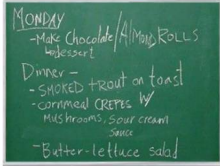 MONDAY
-Make Chocolate/Almond ROLLS
↳dessert
Dinner -
- SMOKED trout on toast
- cornmeal CREPES W/
Mushrooms, Sour cream
sauce
- Butter-lettuce salad